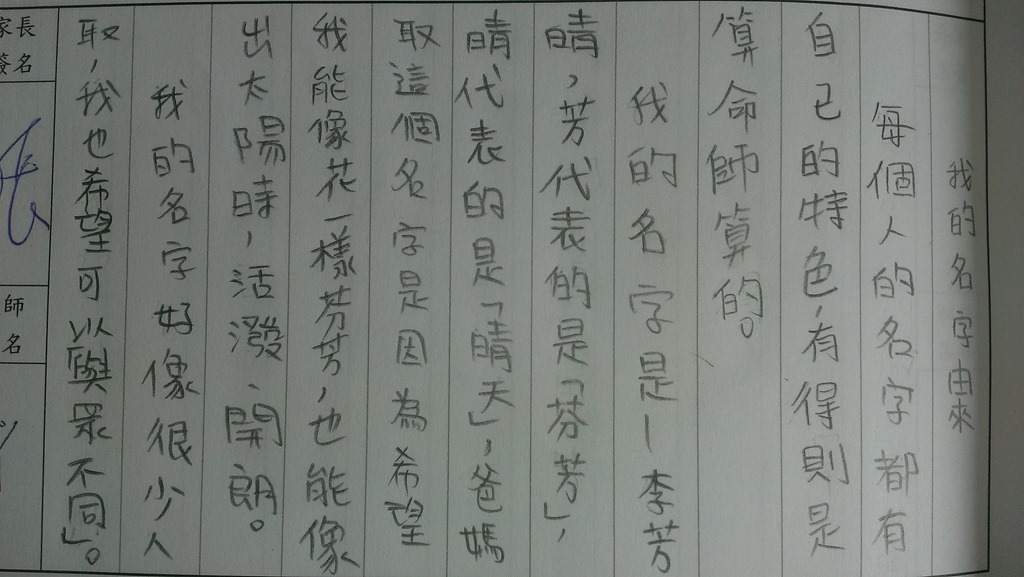 我的名字由來
每個人的名字都有
自己的特色,有得則是
算命師算的。
我的名字是—李芳
晴,芳代表的是「芬芳」,
晴代表的是「晴天」,爸媽
取這個名字是因為希望
我能像花一樣芬芳,也能像
出太陽時,活潑、開朗。
我的名字好像很少人
取,我也希望可以「與眾不同」。
家長
簽名
師
名